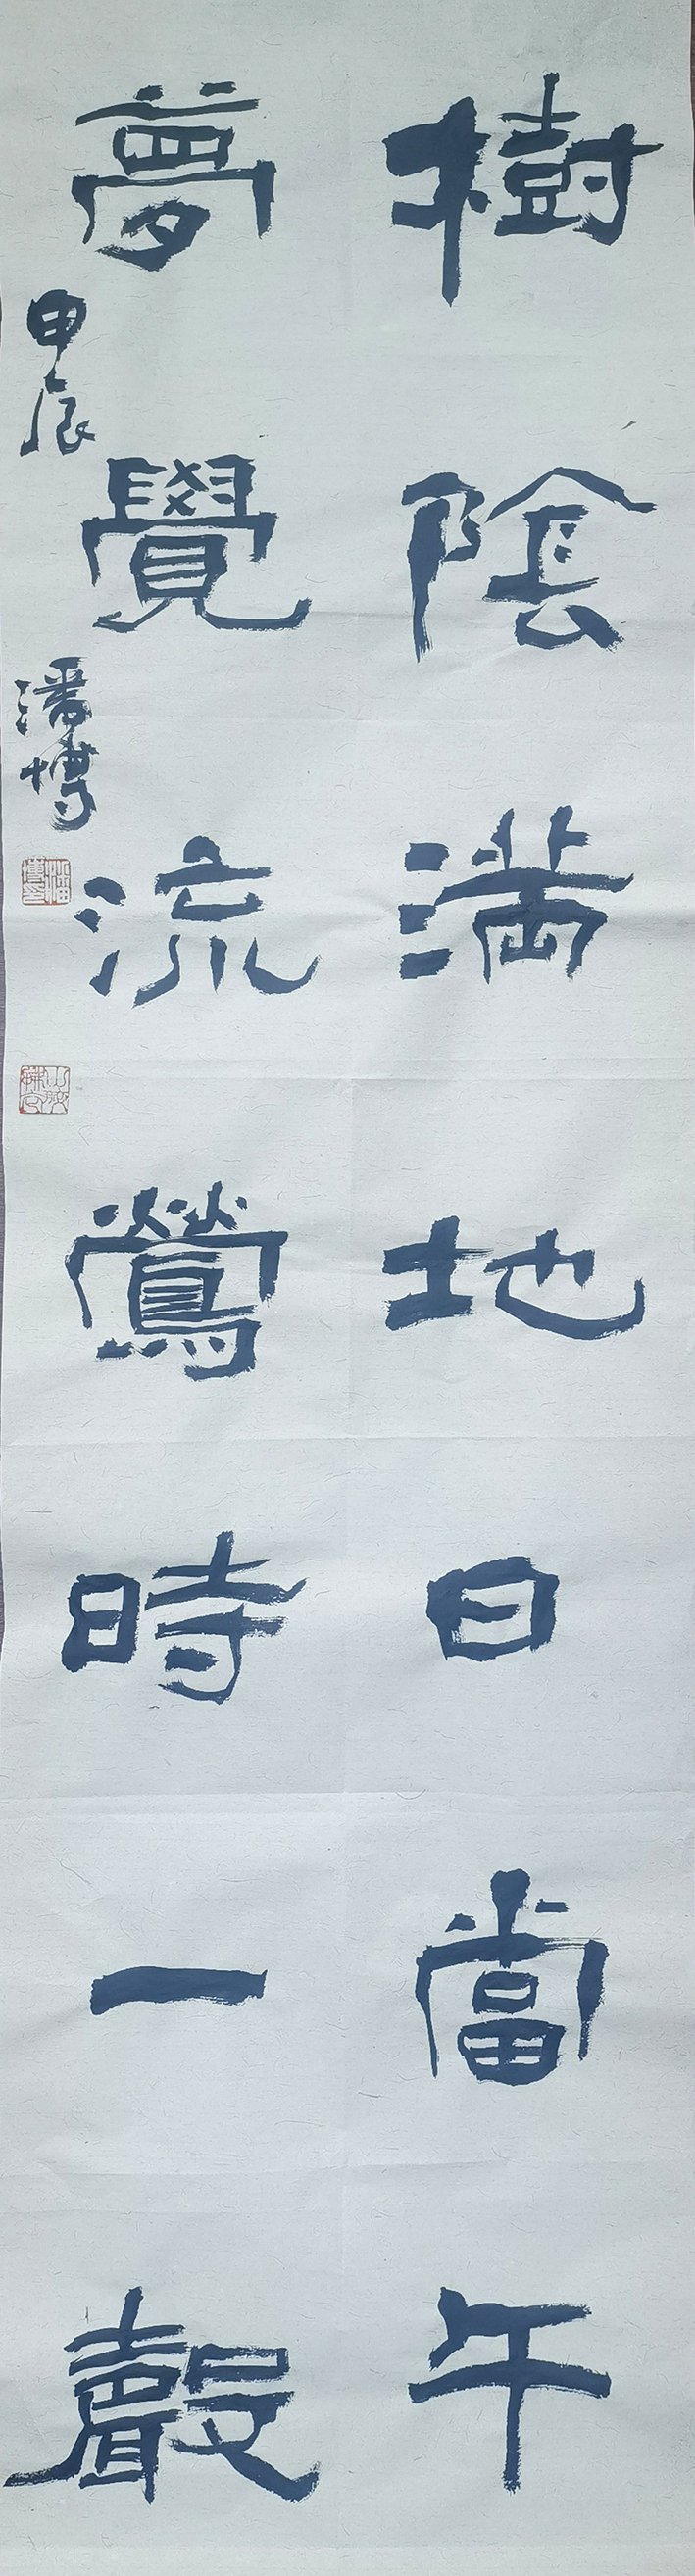 樹陰滿地日當午
夢覺流鶯時一聲
甲辰 潘博